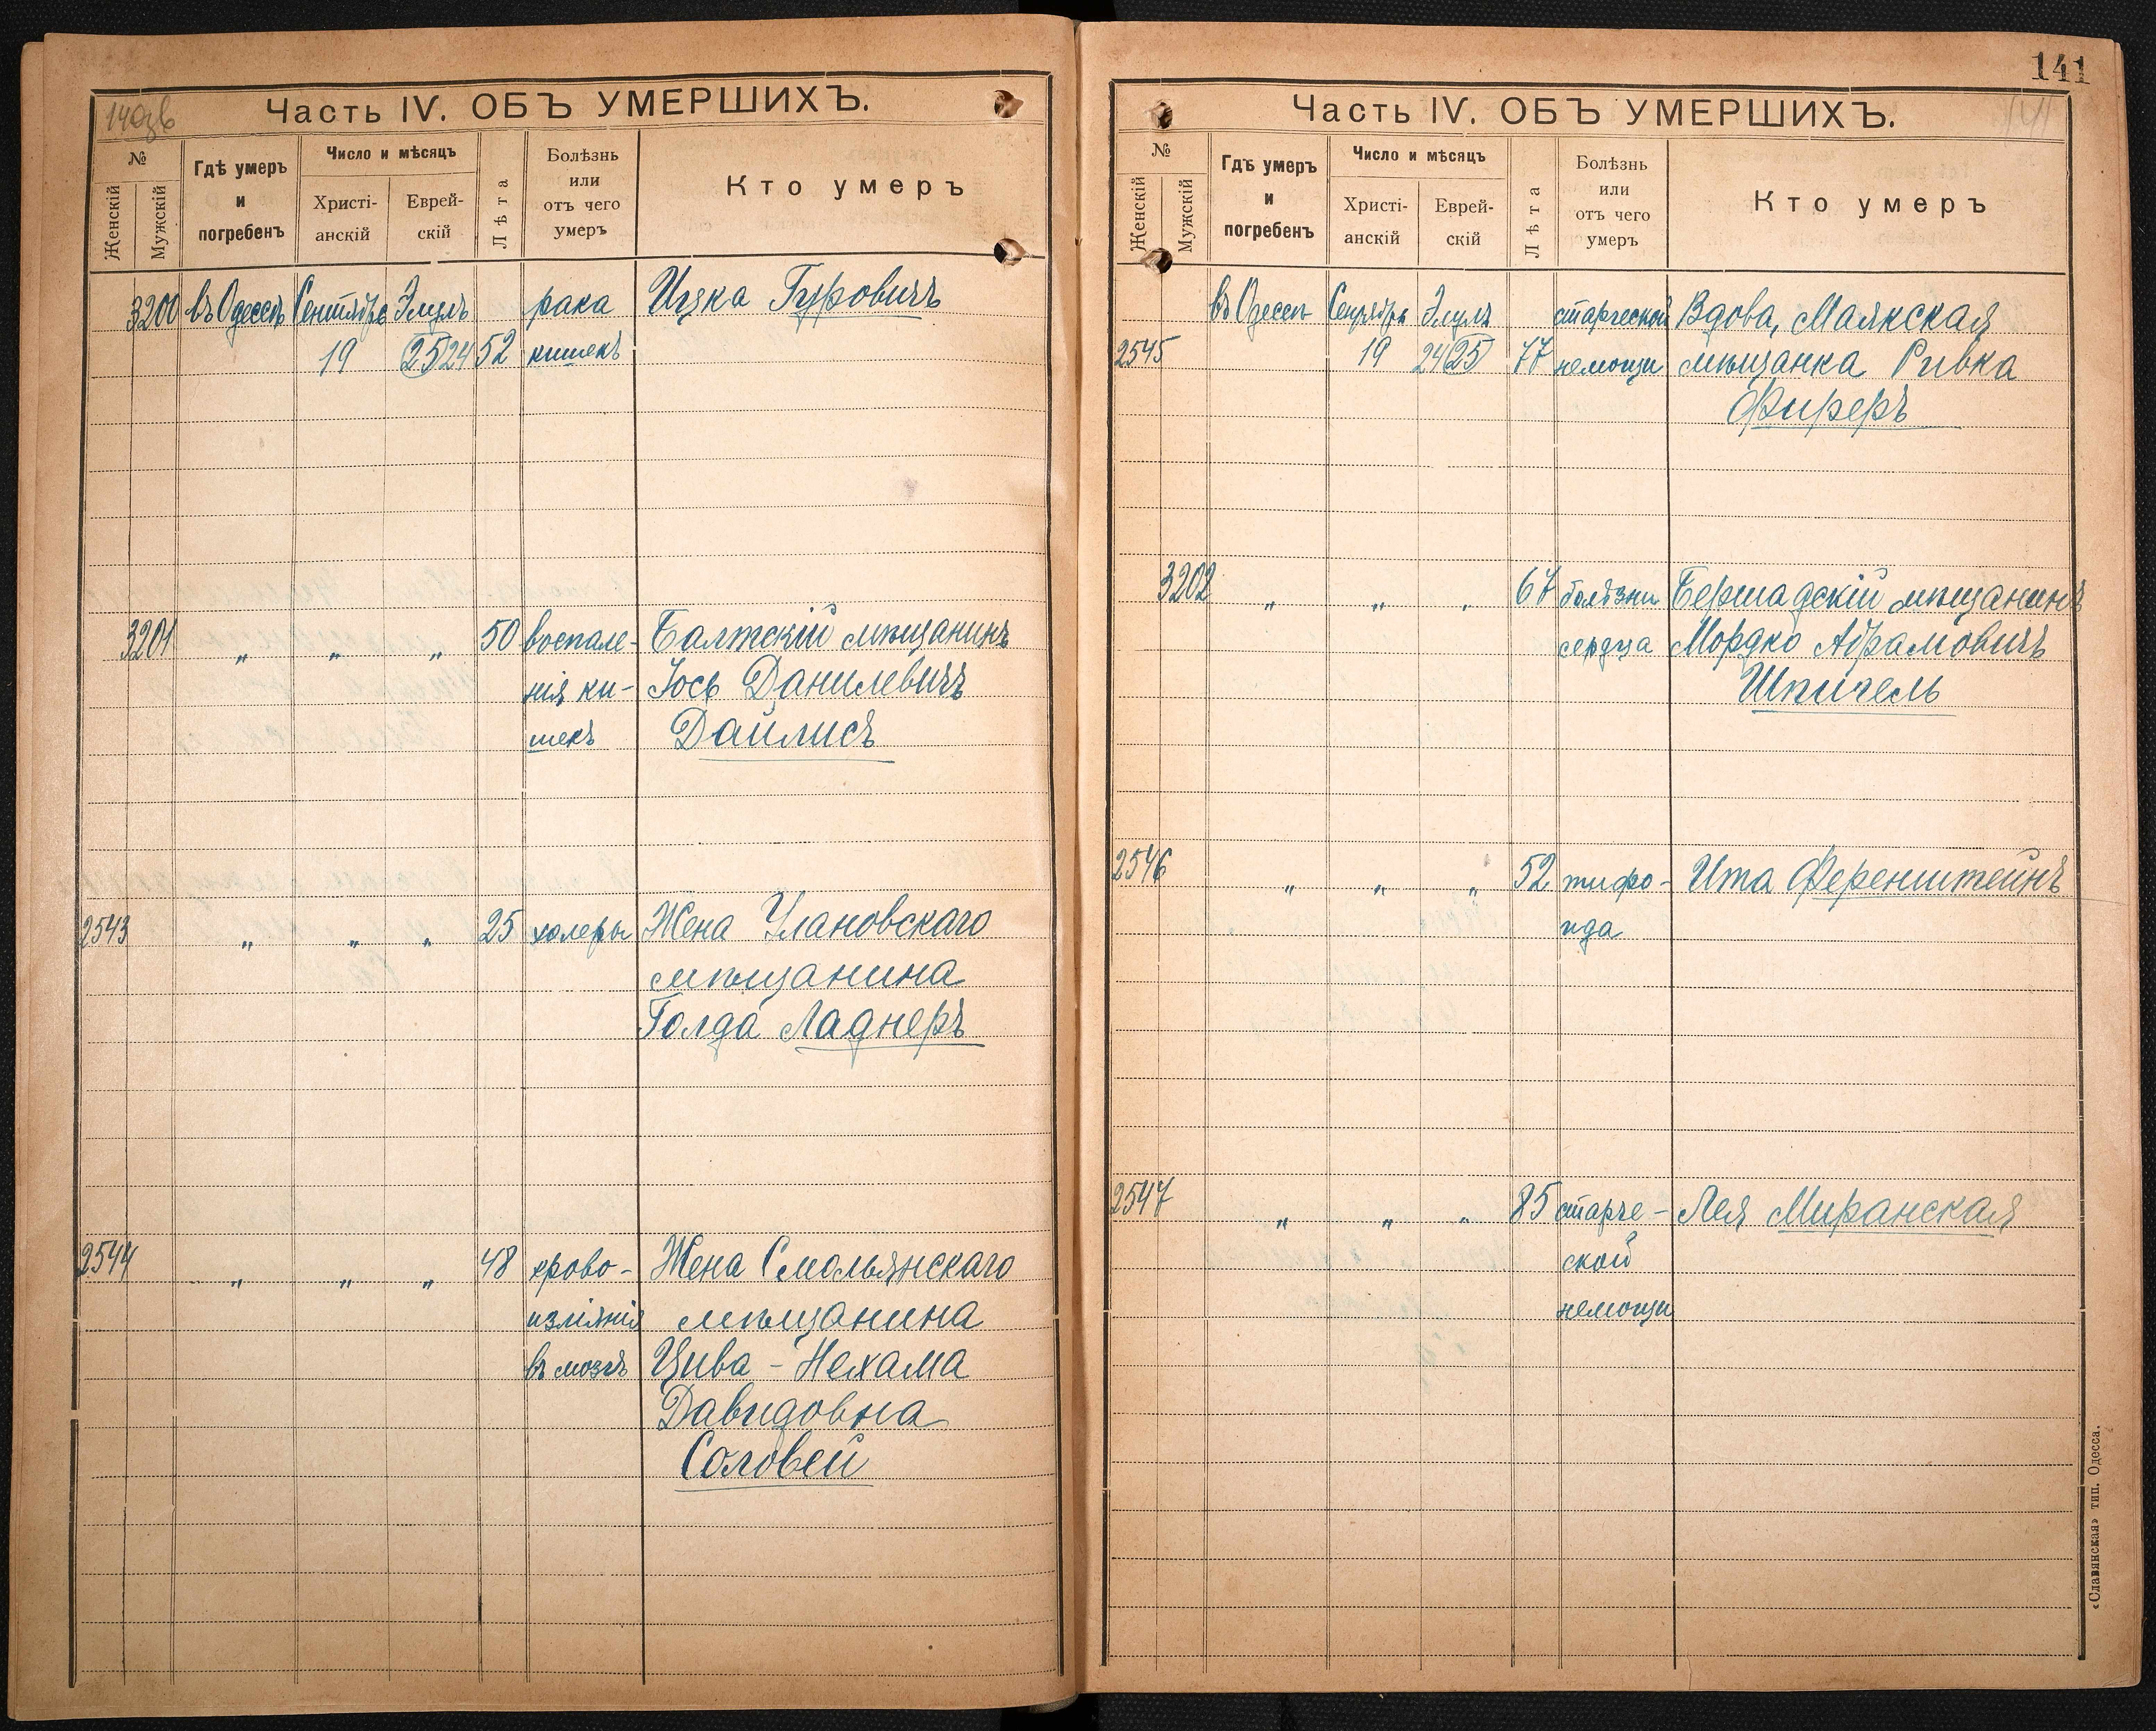 140зв
Часть IV. ОБЪ УМЕРШИХЪ.
№
Женскій
Мужскій
Гдѣ умеръ
и
погребенъ
Число и мѣсяцъ
Христі-
анскій
Еврей-
скій
Лѣта
Болѣзнь
или
отъ чего
умеръ
Кто умеръ
3200 въ Одессѣ Сентября Элулъ рака Ицка Гуровичъ
19 25 24 52 кишекъ
3201 „ „ „ 50 воспале- Балтскій мѣщанинъ
нія ки- Іось Данилевичъ
шекъ Дайлисъ
2543 „ „ „ 25 холеры Жена Улановскаго
мѣщанина
Голда Ладнеръ
2544 „ „ „ 48 крово- Жена Смольянскаго
изліянія мѣщанина
въ мозгъ Цива - Нехама
Давидовна
Соловей
141
141
Часть IV. ОБЪ УМЕРШИХЪ.
№
Женскій
Мужскій
Гдѣ умеръ
и
погребенъ
Число и мѣсяцъ
Христі-
анскій
Еврей-
скій
Лѣта
Болѣзнь
или
отъ чего
умеръ
Кто умеръ
въ Одессѣ Сентября Элулъ старческой Вдова, Маякская
2545 19 24 25 77 немощи мѣщанка Ривка
Фиреръ
3202 „ „ „ 67 болѣзни Бершадскій мѣщанинъ
сердца Мордко Абрамовичъ
Шпигель
2546 „ „ „ 52 тифо- Ита Ференштейнъ
ида
2547 „ „ „ 85 старче- Лея Миранская
ской
немощи
«Славянская» тип. Одесса.